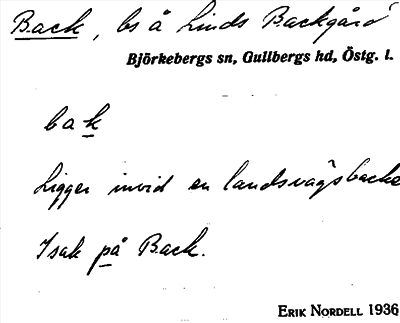 Back, bs å Linds Backgård
Björkebergs sn, Gullbergs hd, Östg. l.
bak
Ligger invid en landsvägsbacke
Isak på Back.
ERIK NORDELL 1936